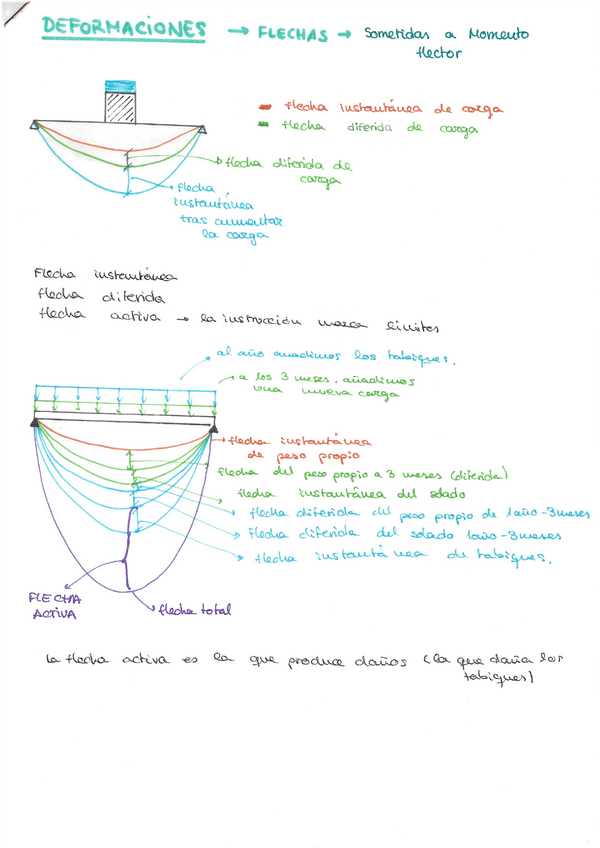 DEFORMACIONES → FLECHAS → Sometidas a Momento
flector
flecha instantánea de carga
flecha diferida de carga
flecha diferida de
carga
flecha
instantánea
tras aumentar
la carga
Flecha instantánea
flecha diferida
flecha activa → la instrucción marca límites
al año anadimos los tabiques.
a los 3 meses, añadimos
una nueva carga
flecha instantánea
de peso propio
flecha del peso propio a 3 meses (diferida)
flecha instantánea del solado
flecha diferida del peso propio de 1año-3meses
flecha diferida del solado 1año-3meses
flecha instantánea de tabiques.
FLECHA
ACTIVA
flecha total
la flecha activa es la que produce daños (la que daña los
tabiques)